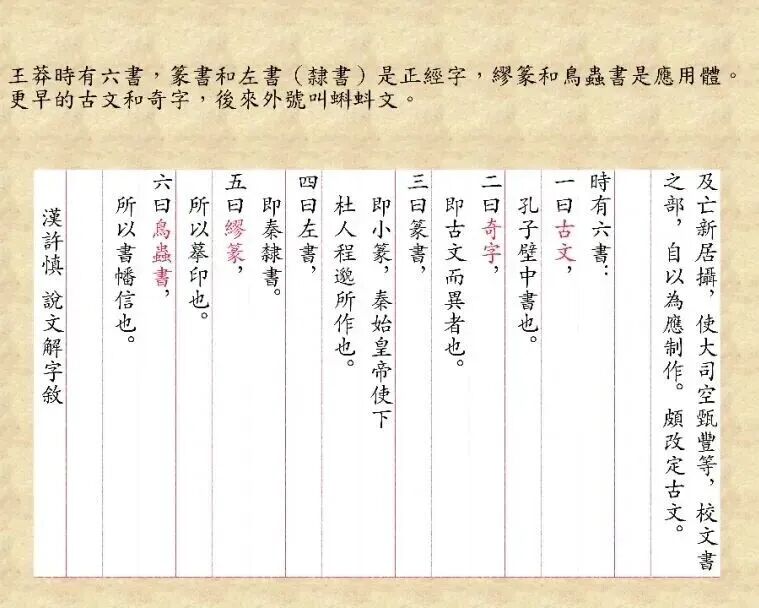 王莽時有六書，篆書和左書（隸書）是正經字，繆篆和鳥蟲書是應用體。
更早的古文和奇字，後來外號叫蝌蚪文。
及亡新居攝，使大司空甄豐等，校文書
之部，自以為應制作。頗改定古文。
時有六書：
一曰古文，
孔子壁中書也。
二曰奇字，
即古文而異者也。
三曰篆書，
即小篆，秦始皇帝使下
杜人程邈所作也。
四曰左書，
即秦隸書。
五曰繆篆，
所以摹印也。
六曰鳥蟲書，
所以書幡信也。
漢許慎 說文解字敘